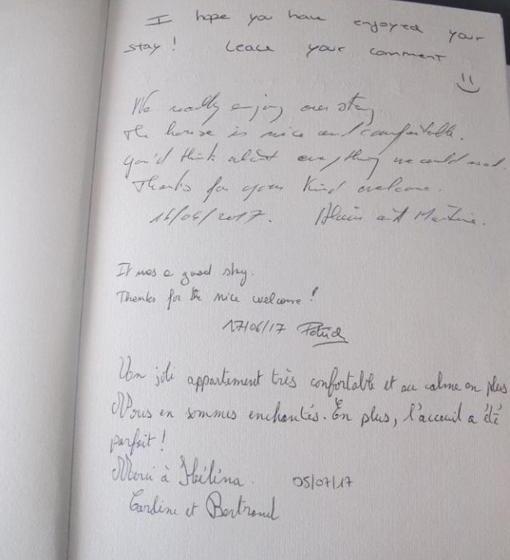 I hope you have enjoyed your
stay! Leace your comment
We really enjoy our stay
The house is nice and comfortable.
you'd think about everything we could need.
Thanks for your kind welcome.
16/06/2017. Alain and Martine.
It was a good stay.
Thanks for the nice welcome!
17/06/17 Patrick
Un joli appartement très confortable et au calme en plus
Nous en sommes enchantés. En plus, l'accueil a été
parfait!
Merci à Héléna. 05/07/17
Carline et Bertrand